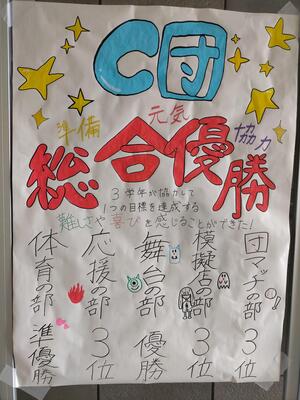 C団
準備
元気
協力
総合優勝
3学年が協力して
1つの目標を達成する
難しさや喜びを感じることができた!
団マッチの部 3位
模擬店の部 3位
舞台の部 優勝
応援の部 3位
体育の部 準優勝